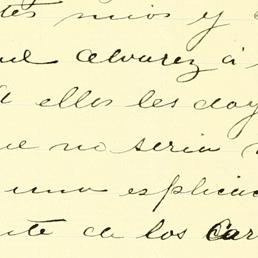 tes mios y
uel Alvarez á
A ellos les doy
ue no seria
una esplicac
nte de los Car